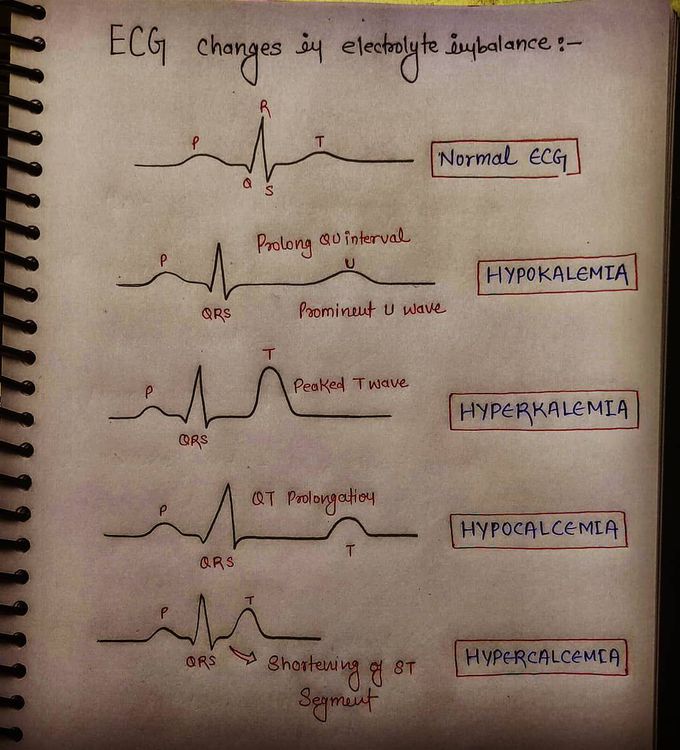 ECG changes in electrolyte imbalance :-
R
P
T
Q
S
Normal ECG
Prolong QU interval
P
U
HYPOKALEMIA
QRS
Prominent U wave
T
P
Peaked T wave
HYPERKALEMIA
QRS
QT Prolongation
P
HYPOCALCEMIA
T
QRS
T
P
QRS
Shortening of ST
Segment
HYPERCALCEMIA